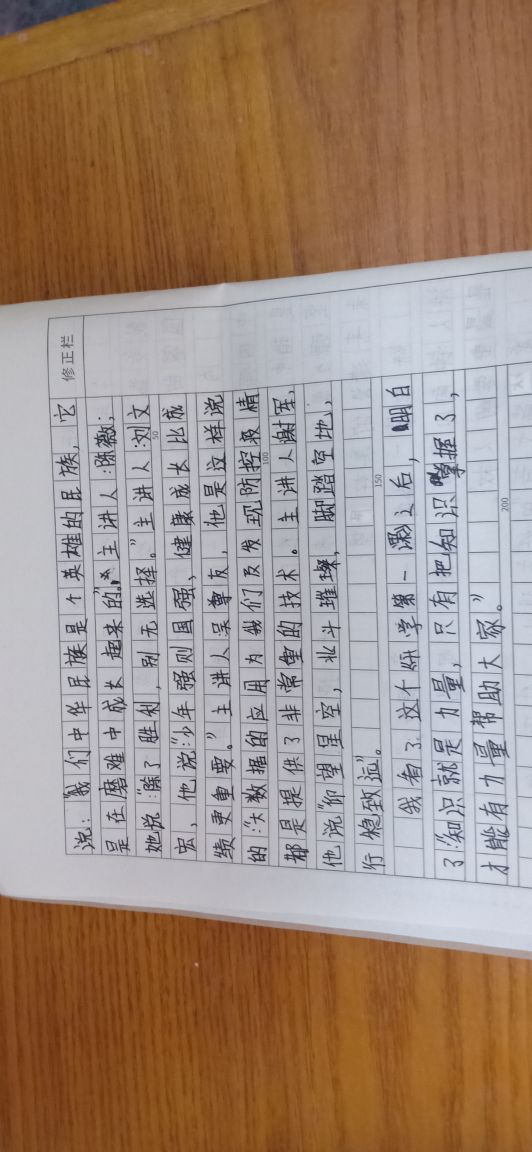 修正栏
说：“我们中华民族是个英雄的民族，它
是在磨难中成长起来的。”主讲人：陈薇，
她说：“除了胜利，别无选择。”主讲人：刘文
50
宏，他说：“少年强则国强，健康成长比成
绩更重要。”主讲人吴尊友，他是这样说
的：“大数据的应用为我们及发现防控疫情
100
都是提供了非常重的技术。主讲人谢军，
他说“仰望星空，北斗璀璨，脚踏空地，
行稳致远”。
150
我看了这个开学第一课之后，明白
了：“知识就是力量，只有把知识掌握了，
才能有力量帮助大家。”
200